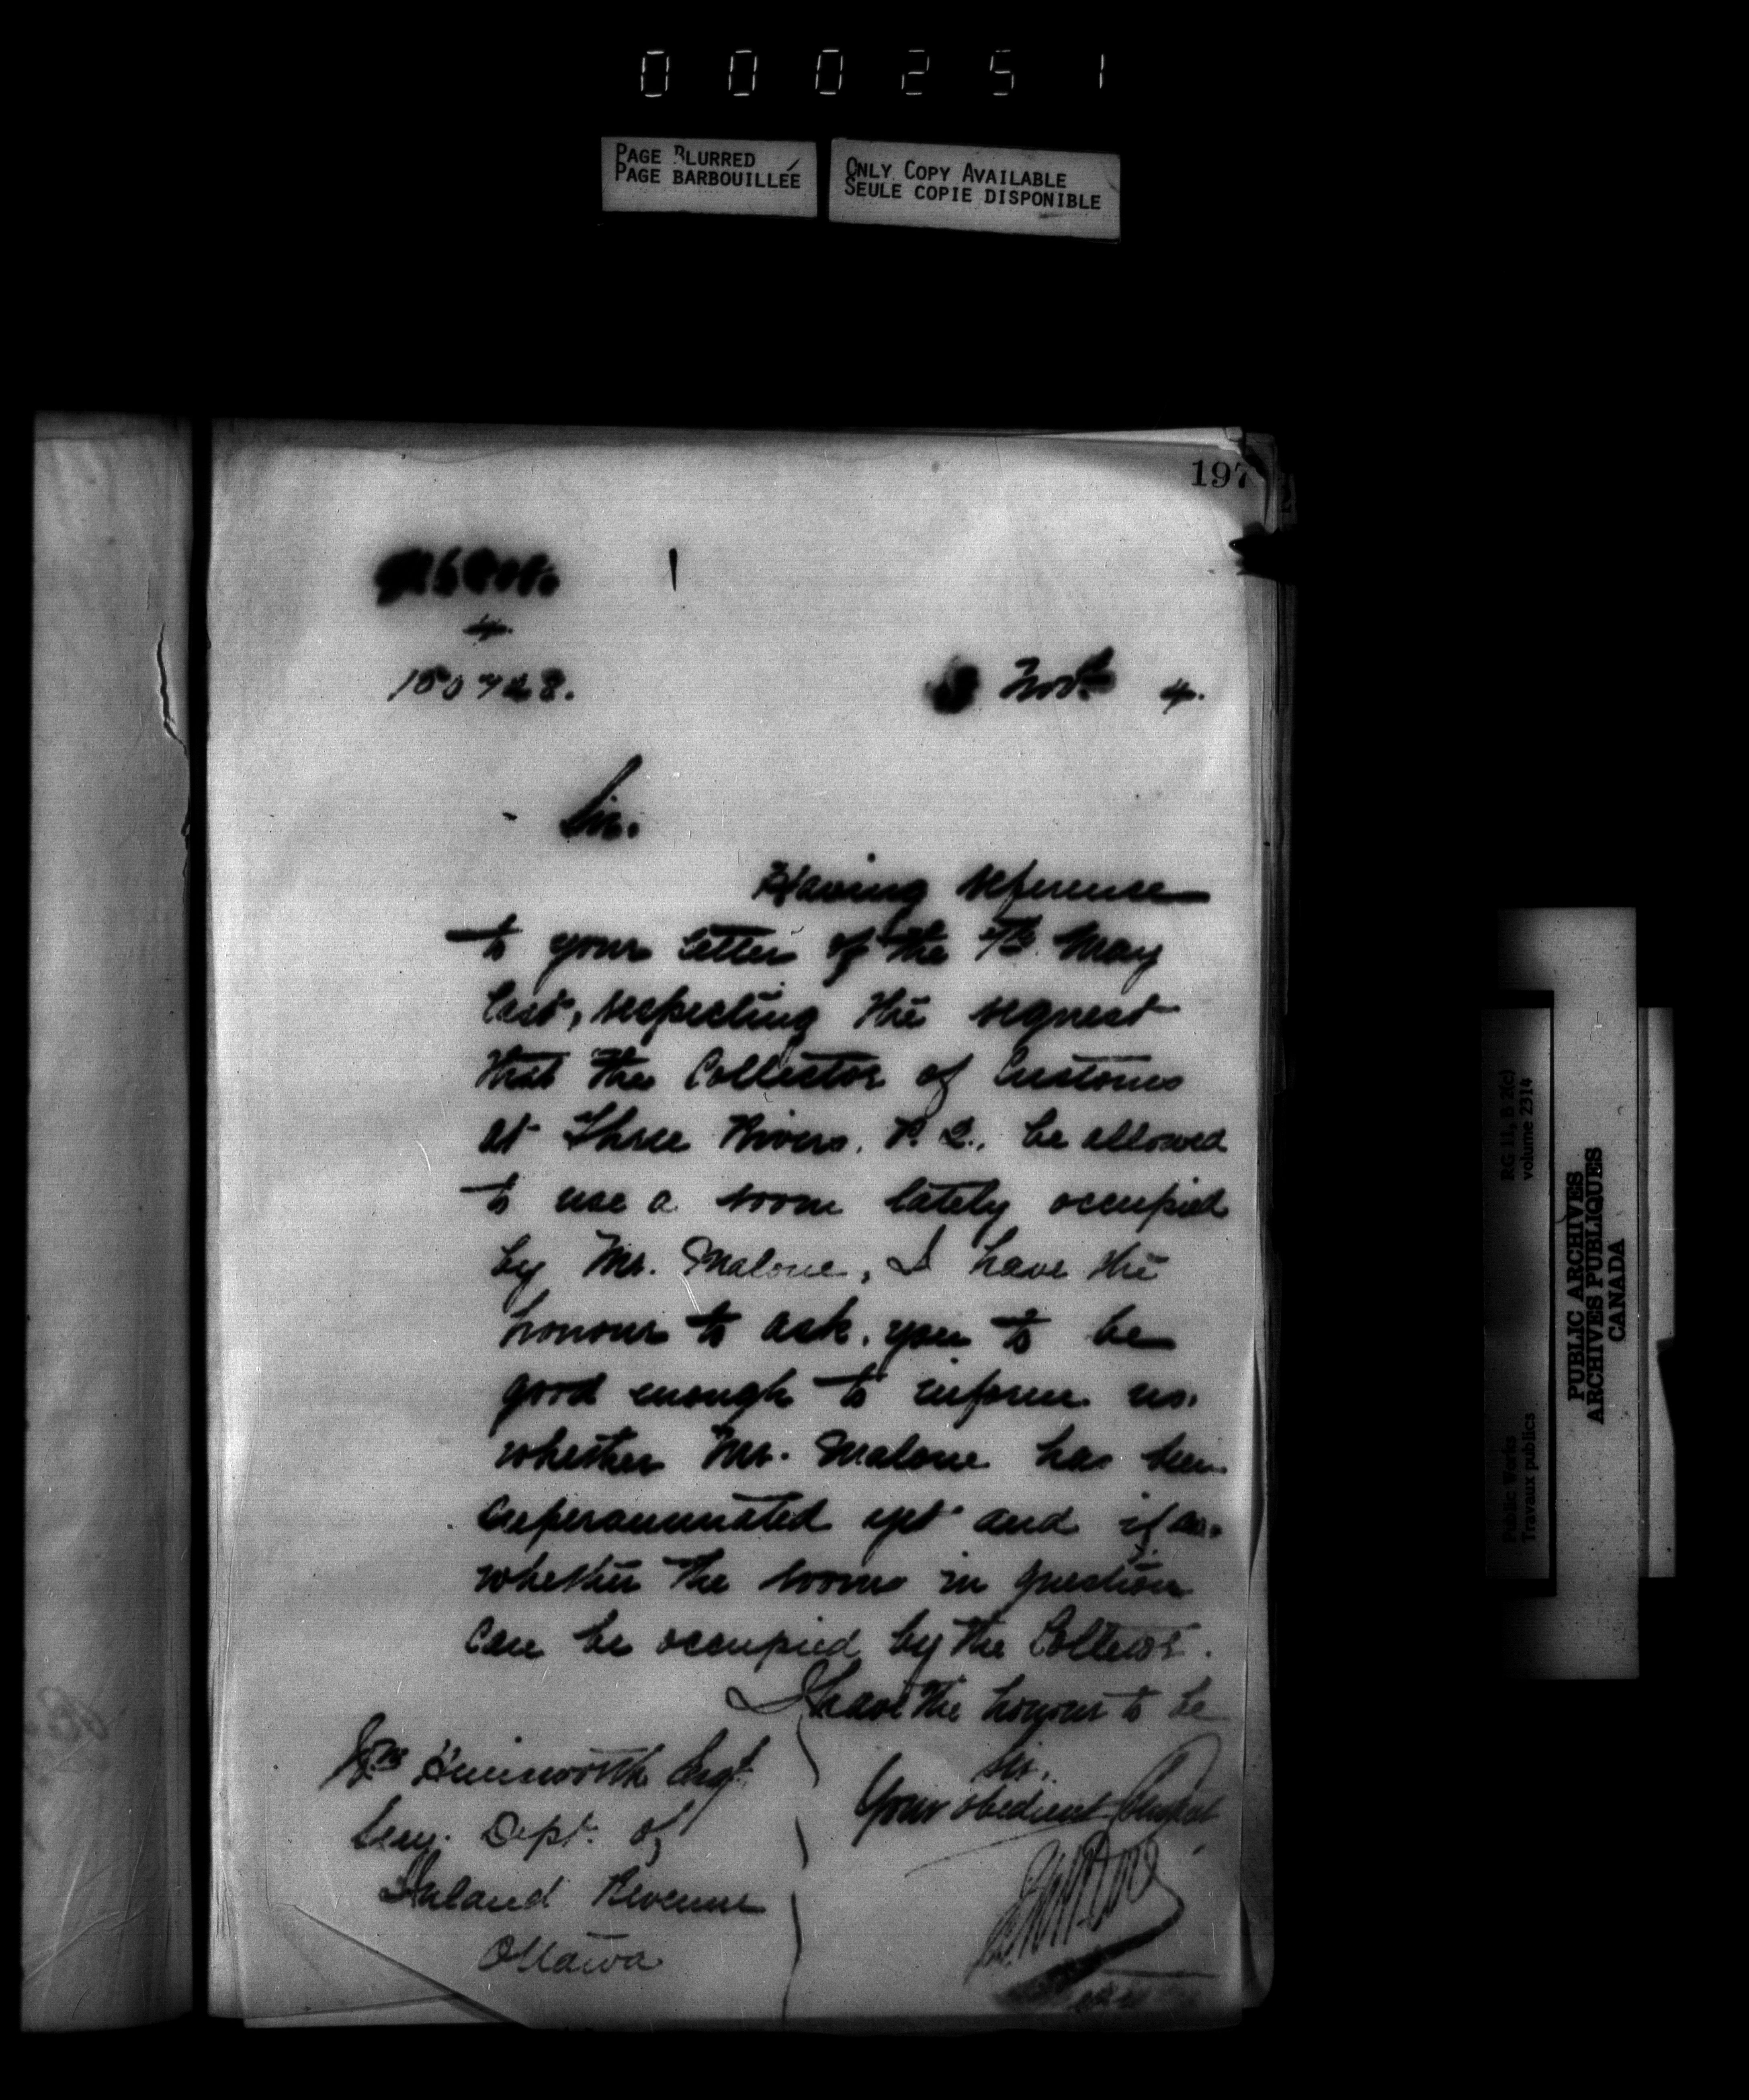 000251
PAGE BLURRED
PAGE BARBOUILLÉE
ONLY COPY AVAILABLE
SEULE COPIE DISPONIBLE
197
4.
150728.
3 Novr. 4.
Sir.
Having reference
to your letter of the 7th. May
last, respecting the request
that the Collector of Customs
at Three Rivers. P. Q., be allowed
to use a room lately occupied
by Mr. Malone, I have the
honour to ask you to be
good enough to inform us.
whether Mr. Malone has been
superannuated yet and if so.
whether the rooms in question
can be occupied by the Collector.
I have the honour to be
Sir,
Your obedient Servant
Wm Himsworth Esqr.
Secy. Dept. of
Inland Revenue
Ottawa
RG 11, B 2(c)
volume 2314
Public Works
Travaux publics
PUBLIC ARCHIVES
ARCHIVES PUBLIQUES
CANADA